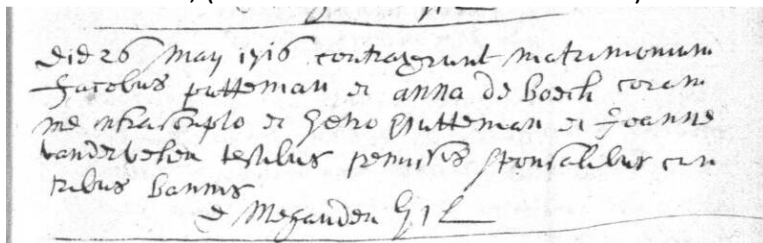 die 26 May 1716 contraxerunt matrimonium
Jacobus putteman et anna de Boeck coram
me infrascripto et petro putteman et Joanne
vandervelen testibus premissis sponsalibus cum
tribus bannis